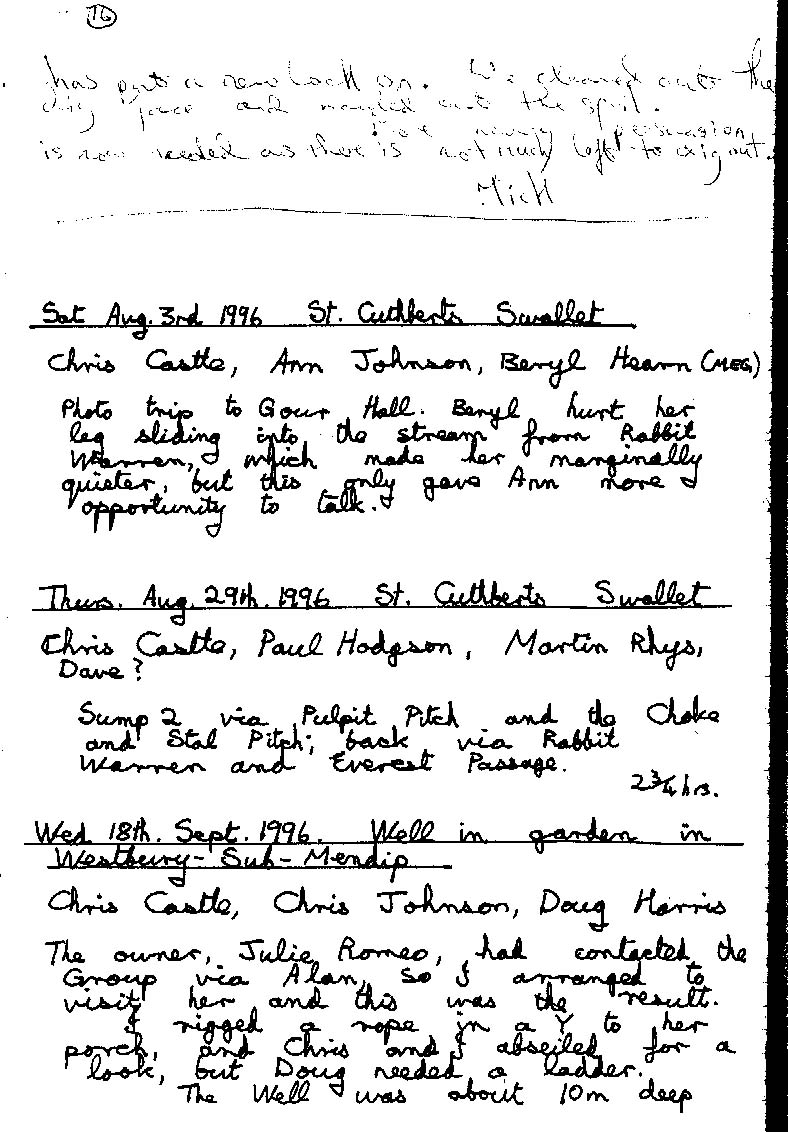 16
has put a new lock on. We cleared out the
dig face and the spoil.
persuasion
is now needed as there is not much left to dig out.
Mick
Sat Aug. 3rd 1996 St. Cuthberts Swallet
Chris Castle, Ann Johnson, Beryl Hearn (MEG)
Photo trip to Gour Hall. Beryl hurt her
leg sliding into the stream from Rabbit
Warren, which made her marginally
quieter, but this only gave Ann more
opportunity to talk.
Thurs. Aug. 29th. 1996 St. Cuthberts Swallet
Chris Castle, Paul Hodgson, Martin Rhys,
Dave?
Sump 2 via Pulpit Pitch and the Choke
and Stal Pitch; back via Rabbit
Warren and Everest Passage.
2¾ hrs.
Wed 18th. Sept. 1996. Well in garden in
Westbury-Sub-Mendip
Chris Castle, Chris Johnson, Doug Harris
The owner, Julie Romeo, had contacted the
Group via Alan, so I arranged to
visit her and this was the result.
I rigged a rope in a Y to her
porch, and Chris and I abseiled for a
look, but Doug needed a ladder.
The Well was about 10m deep